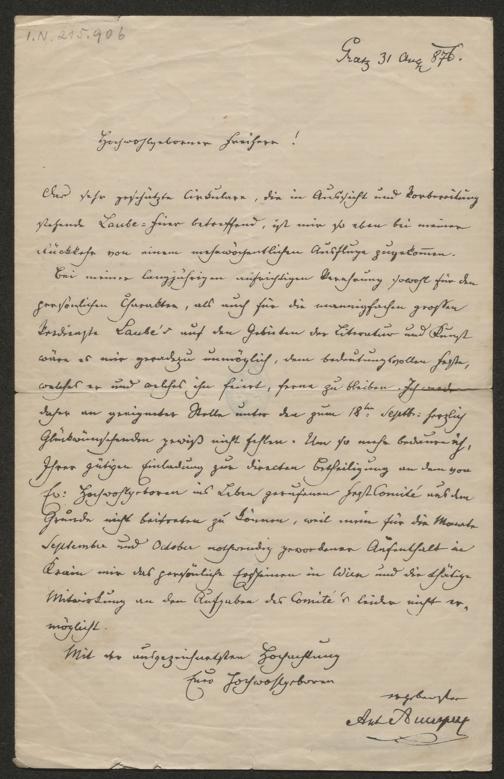 I.N. 215.906
Gratz 31 Aug 876.
Hochwohlgeborner Freiherr!
Das sehr geschätzte Circulare, die in Aussicht und Vorbereitung
stehende Laube=Feier betreffend, ist mir so eben bei meiner
Rückkehr von einem mehrwöchentlichen Ausfluge zugekommen.
Bei meiner langjährigen aufrichtigen Verehrung sowohl für den
persönlichen Charakter, als auch für die mannigfachen großen
Verdienste Laube's auf den Gebieten der Literatur und Kunst
wäre es mir geradezu unmöglich, dem bedeutungsvollen Feste,
welches er und welches ihn feiert, ferne zu bleiben. Ich werde
daher an geeigneter Stelle unter den zum 18ten Septb: herzlich
Glückwünschenden gewiß nicht fehlen. Um so mehr bedaure ich,
Ihrer gütigen Einladung zur directen Betheiligung an dem von
Ew: Hochwohlgeboren ins Leben gerufenen Festcomité aus dem
Grunde nicht beitreten zu können, weil mein für die Monate
September und October nothwendig gewordener Aufenthalt in
Krain mir das persönliche Erscheinen in Wien und die thätige
Mitwirkung an den Aufgaben des Comité's leider nicht er-
möglicht.
Mit der ausgezeichnetsten Hochachtung
Euer Hochwohlgeboren
ergebenster
Ant Auersperg